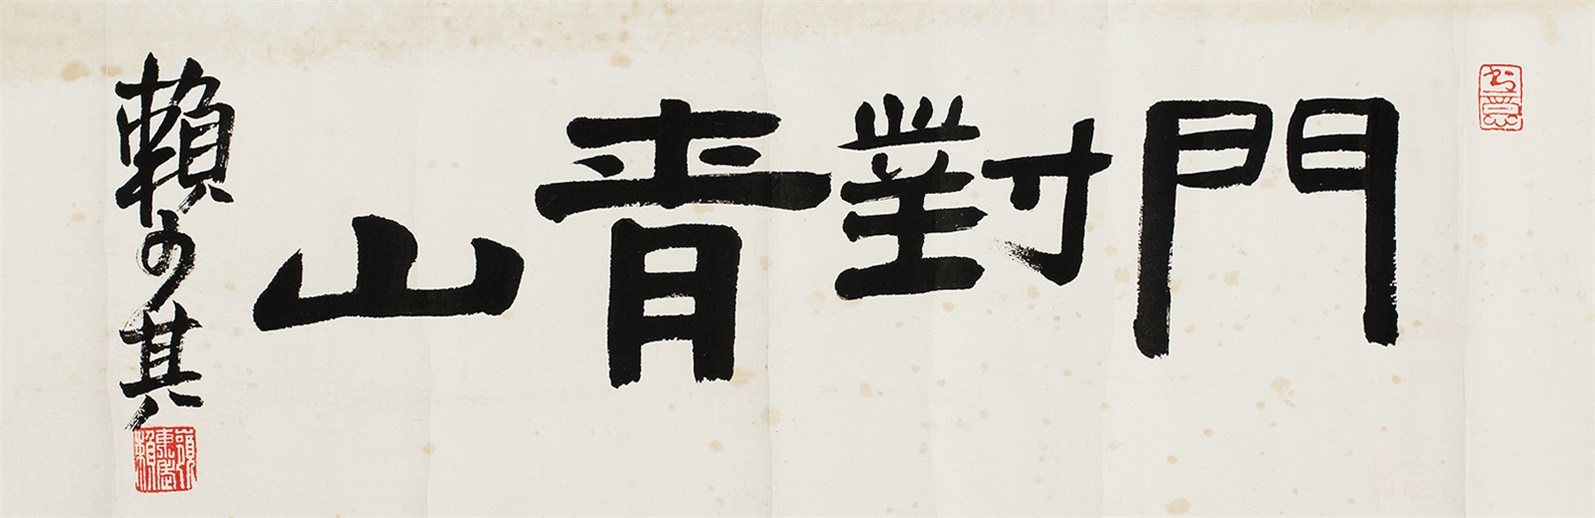 門對青山
賴少其